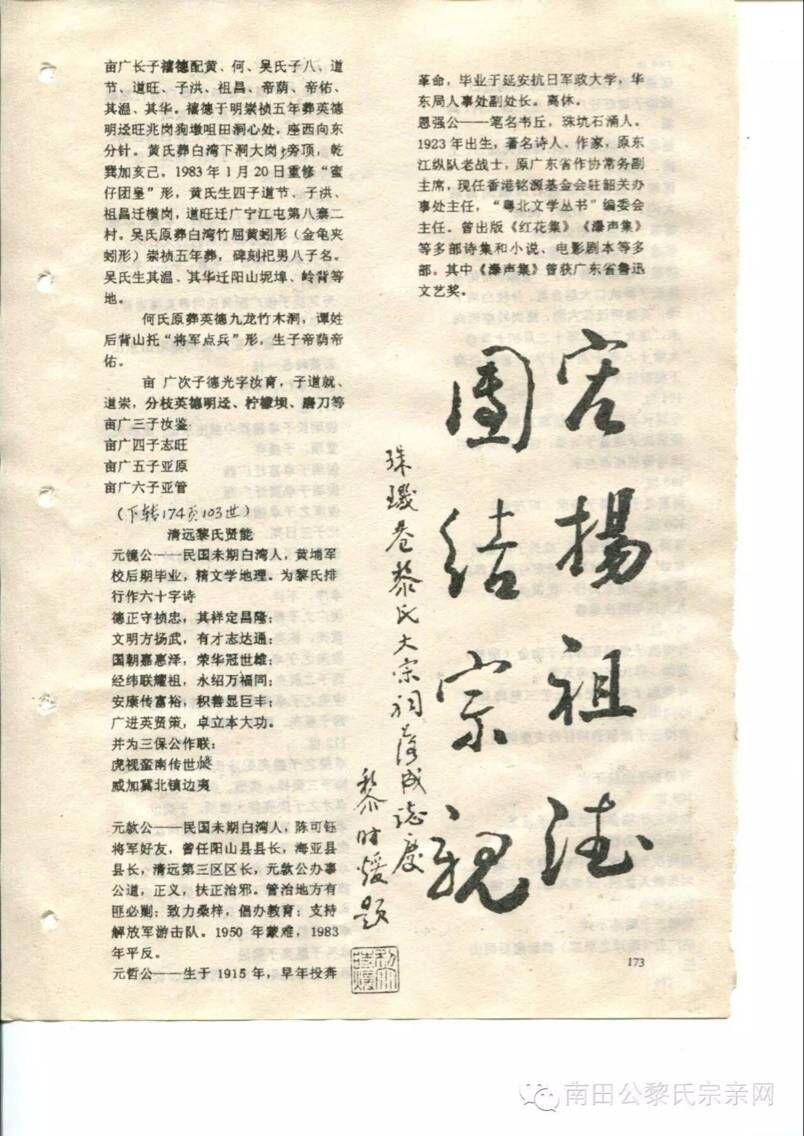 亩广长子禧德配黄、何、吴氏子八、道
节、道旺、子洪、祖昌、帝荫、帝佑、
其温、其华。禧德于明崇祯五年葬英德
明迳旺兆岗狗墩咀田洞心处，座西向东
分针。黄氏葬白湾下洞大岗旁顶，乾
巽加亥己，1983年1月20日重修“蜜
仔团皇”形，黄氏生四子道节、子洪、
祖昌迁横岗，道旺迁广宁江屯第八寨二
村。吴氏原葬白湾竹屈黄蚓形（金龟夹
蚓形）崇祯五年葬，碑刻祀男八子名。
吴氏生其温、其华迁阳山坭埠、岭背等
地。
何氏原葬英德九龙竹木洞，谭姓
后背山托“将军点兵”形，生子帝荫帝
佑。
亩 广次子德光字汝育，子道就、
道崇，分枝英德明迳、柠檬坝、磨刀等
亩广三子汝鉴
亩广四子志旺
亩广五子亚原
亩广六子亚管
（下转174页103世）
清远黎氏贤能
元镜公——民国未期白湾人，黄埔军
校后期毕业，精文学地理。为黎氏排
行作六十字诗
德正守祯忠，其祥定昌隆；
文明方扬武，有才志达通；
国朝嘉惠泽，荣华冠世雄；
经纬联耀祖，永绍万福同；
安康传富裕，积善显巨丰；
广进英贤策，卓立本大功。
并为三保公作联：
虎视蛮南传世
威加冀北镇边夷
元欨公——民国未期白湾人，陈可钰
将军好友，曾任阳山县县长，海亚县
县长，清远第三区区长，元欨公办事
公道，正义，扶正治邪。管治地方有
匪必剿；致力桑梓，倡办教育；支持
解放军游击队。1950年蒙难，1983
年平反。
元哲公——生于1915年，早年投奔
革命，毕业于延安抗日军政大学，华
东局人事处副处长。离休。
恩强公——笔名韦丘，珠坑石涌人。
1923年出生，著名诗人、作家，原东
江纵队老战士，原广东省作协常务副
主席，现任香港铭源基金会驻韶关办
事处主任，“粤北文学丛书”编委会
主任。曾出版《红花集》《瀑声集》
等多部诗集和小说、电影剧本等多
部。其中《瀑声集》曾获广东省鲁迅
文艺奖。
宏揚祖德
團結宗親
珠璣巷黎氏大宗祠落成誌慶
黎时煖題
173
南田公黎氏宗亲网